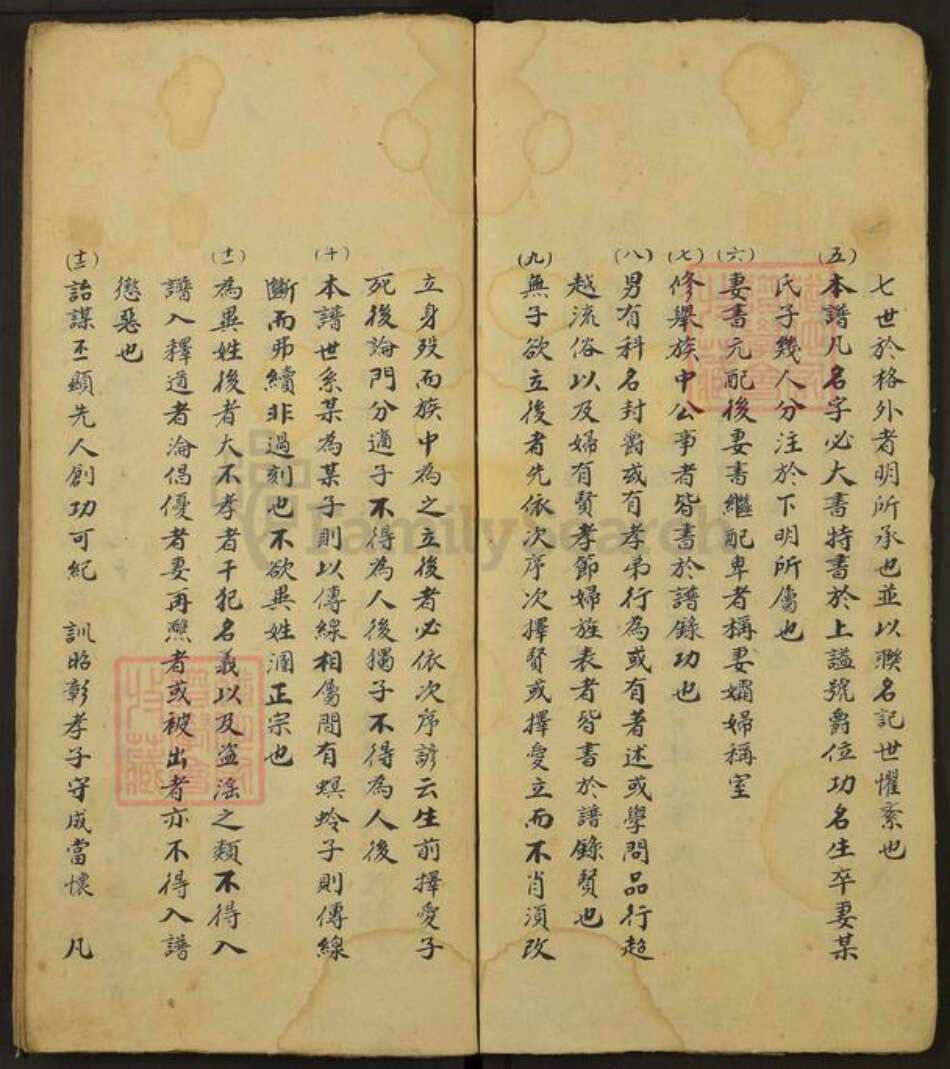 七世於格外者明所承也並以聯名記世懼紊也
(五)本譜凡名字必大書特書於上謚號爵位功名生卒妻某
氏子幾人分注於下明所屬也
(六)妻書元配後妻書繼配卑者稱妻孀婦稱室
(七)修舉族中公事者皆書於譜錄功也
(八)男有科名封爵或有孝弟行為或有著述或學問品行超
越流俗以及婦有賢孝節婦旌表者皆書於譜錄賢也
(九)無子欲立後者先依次序次擇賢或擇愛立而不肖須改
立身歿而族中為之立後者必依次序諺云生前擇愛子
死後論門分適子不得為人後獨子不得為人後
(十)本譜世系某為某子則以傳線相屬間有螟蛉子則傳線
斷而弗續非過刻也不欲異姓溷正宗也
(十一)為異姓後者大不孝者干犯名義以及盜淫之類不得入
譜入釋道者淪倡優者妻再醮者或被出者亦不得入譜
懲惡也
(十二)詒謀丕顯先人創功可紀 訓昭彰孝子守成當懷 凡
FamilySearch